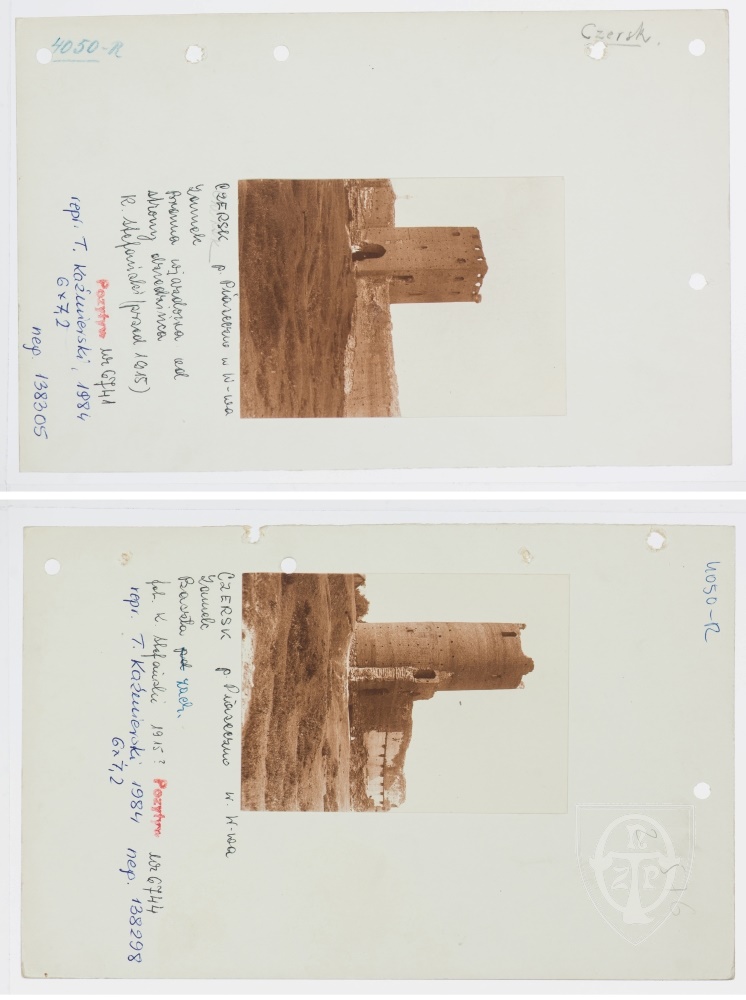 4050-R
Czersk.
CZERSK p. Piaseczno w W-wa
Zamek
Brama wjazdowa od
strony dziedzińca
K. Stefański (przed 1915)
Pozytyw nr 6741
repr. T. Kaźmierski, 1984
6x7,2
neg. 138305
4050-R
CZERSK p Piaseczno w. W-wa
Zamek
Baszta zach.
fot. K Stefański 1915? Pozytyw nr 6744
repr. T. Kaźmierski 1984 neg. 138298
6x7,2
TNP